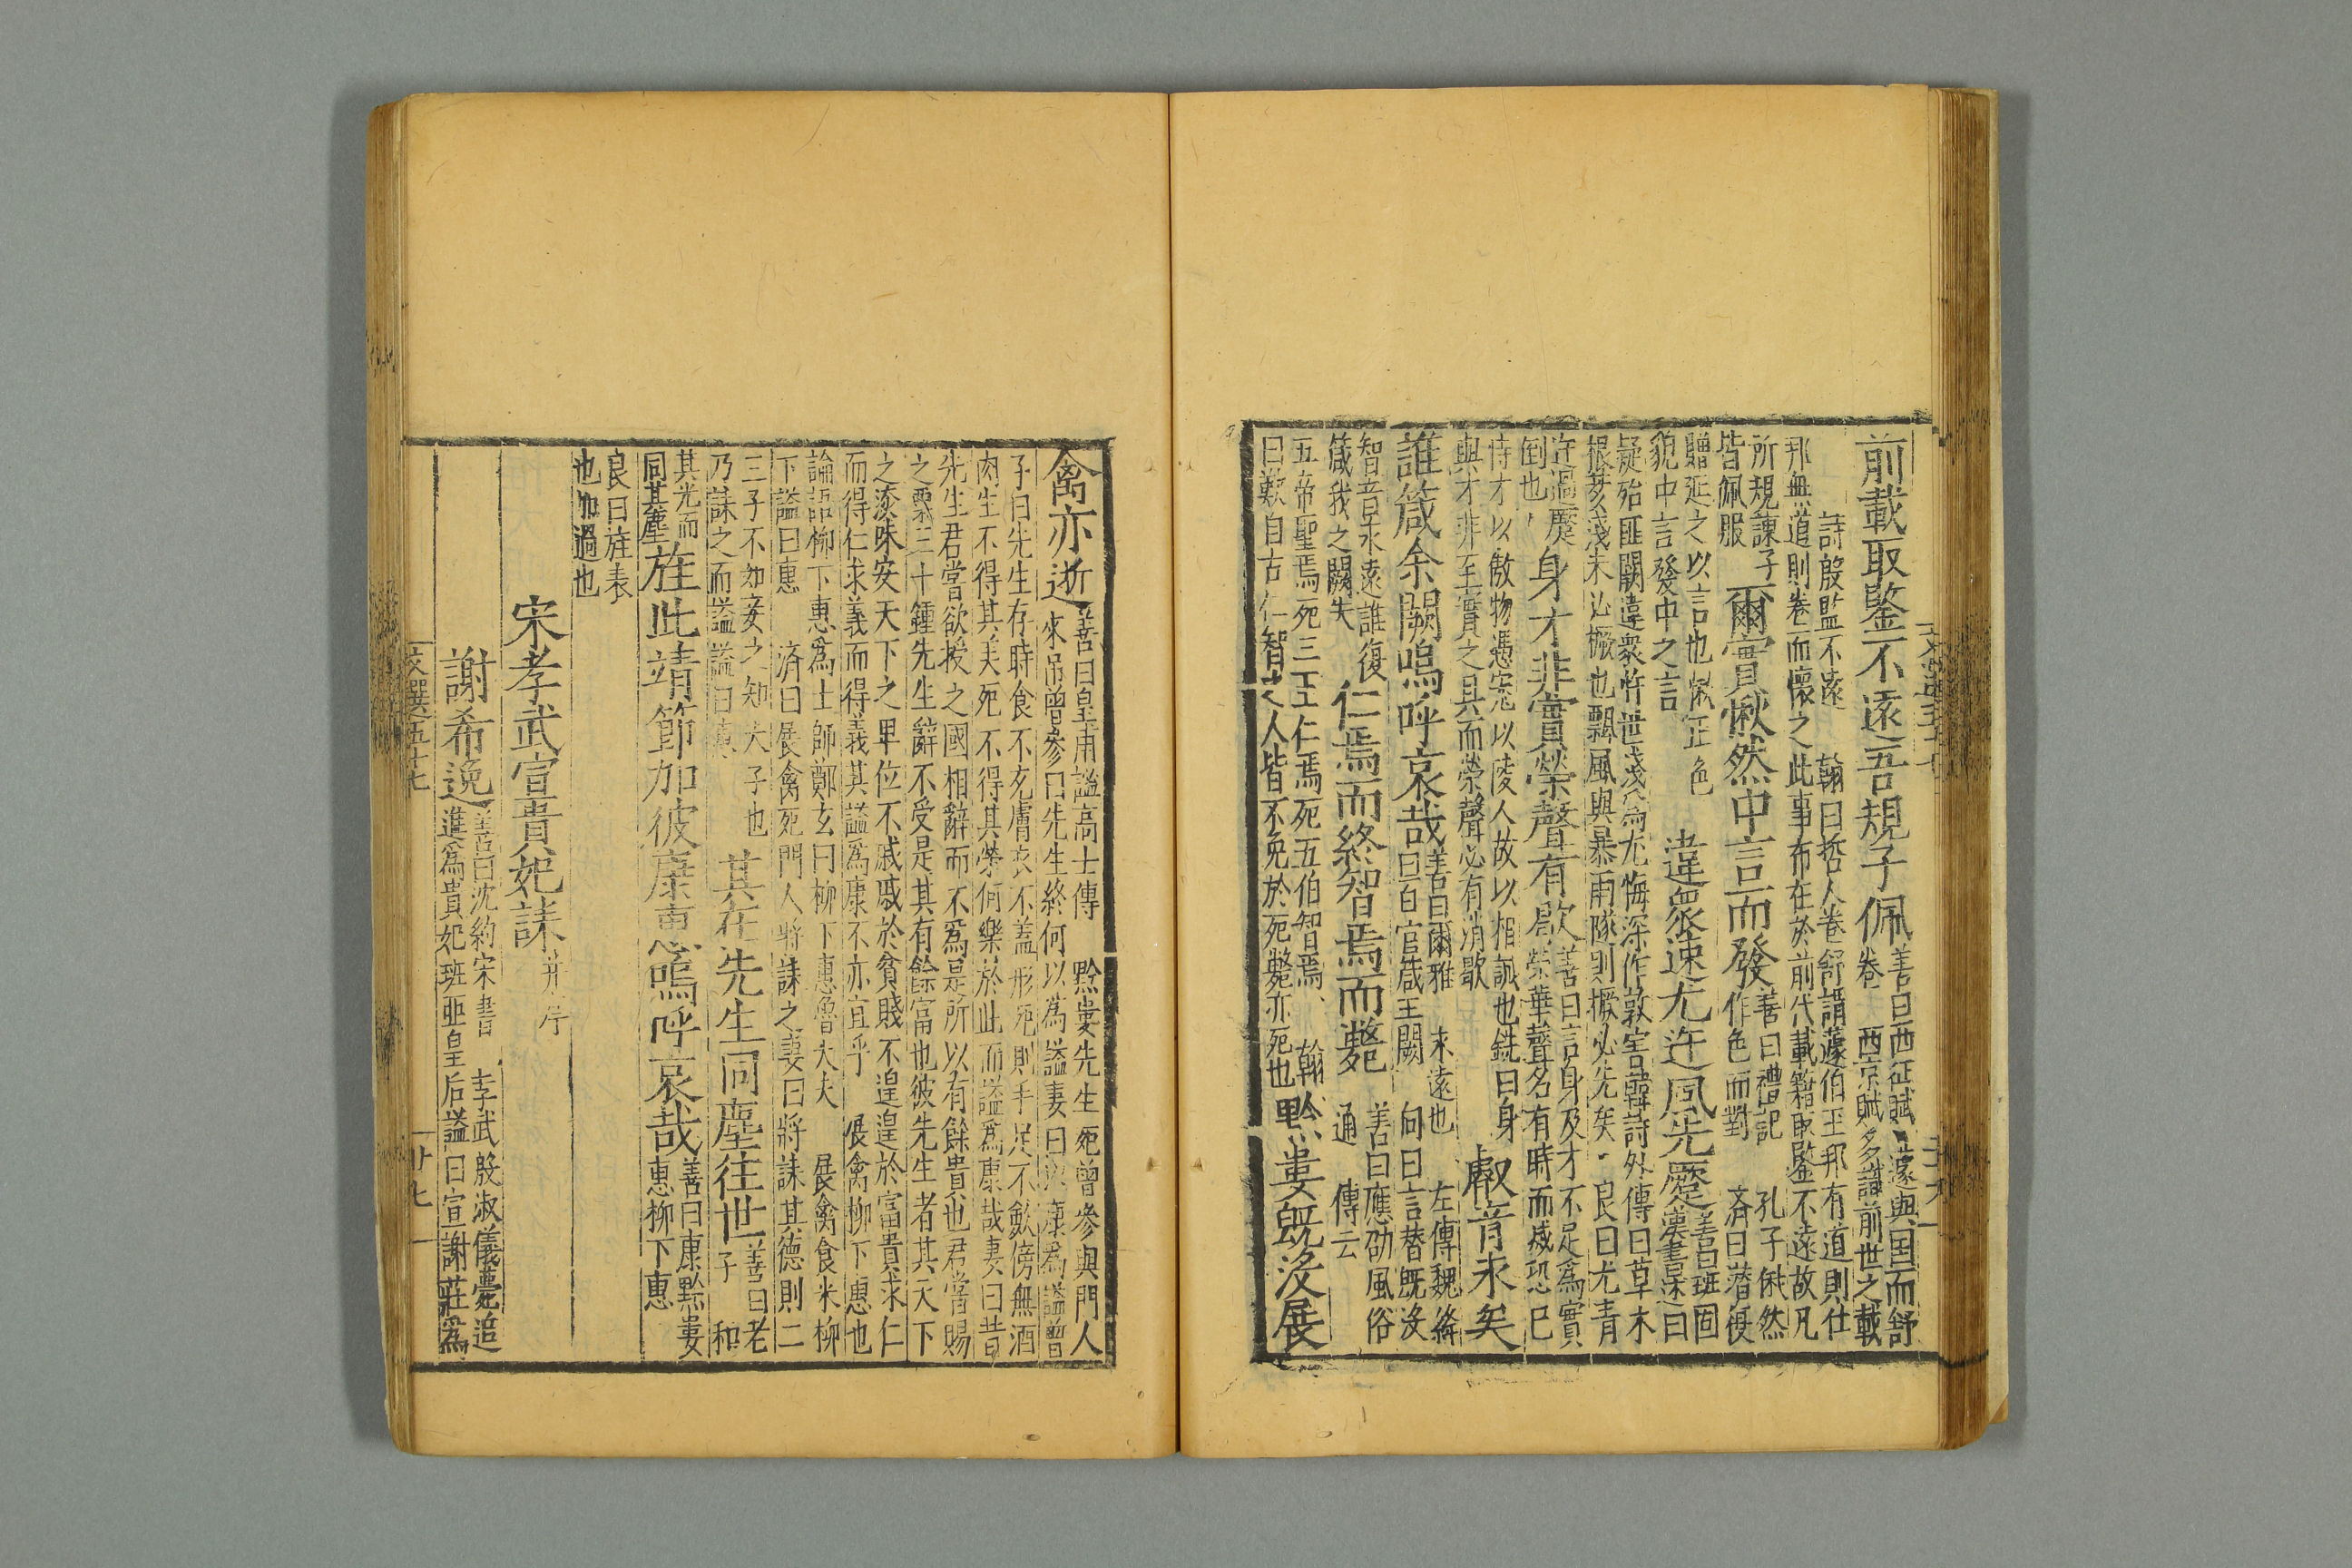 前載取鑒不遠吾規子佩善曰西征賦曰蘧與国而舒
卷西京賦多識前世之載
詩殷監不遠　翰曰哲人卷舒謂蘧伯玉邦有道則仕
邦無道則卷而懷之此事布在於前代載籍取鑒不遠故凡
所規諫子
皆佩服爾實愀然中言而發善曰禮記　孔子愀然
作色而對　済曰潜復
贈延之以言也愀正色
貌中言發中之言違衆速尤迕風先蹷善曰班固
漢書述曰
疑殆匪闕違衆忤世淺爲尤悔深作敦害韓詩外傳曰草木
根荄淺未必撅也飄風與暴雨隊則撅必先矣　良曰尤責
迕過蹷
倒也身才非實榮聲有歇善曰言身及才不足爲實
榮華聲名有時而滅恐已
恃才以傲物憑寵以陵人故以相誡也銑曰身
與才非至實之具而榮聲必有消歇叡音永矣
誰箴余闕嗚呼哀哉善曰爾雅　永遠也　左傳魏絳
曰百官箴王闕　向曰言替旣没
智音永遠誰復
箴我之闕失仁焉而終智焉而斃善曰應劭風俗
通　傳云
五帝聖焉死三王仁焉死五伯智焉　翰
曰歎自古仁智之人皆不免於死斃亦死也黔婁旣没展
禽亦逝善曰皇甫謐高士傳　黔婁先生死曾參與門人
來吊曾參曰先生終何以爲謚妻曰以康爲謚曾
子曰先生存時食不充膚衣不蓋形死則手足不歛傍無酒
肉生不得其美死不得其榮何樂於此而謚爲康哉妻曰昔
先生君嘗欲授之國相辭而不爲是所以有餘貴也君嘗賜
之粟三十鍾先生辭不受是其有餘富也彼先生者其天下
之淡味安天下之卑位不戚戚於貧賤不遑遑於富貴求仁
而得仁求義而得義其謚爲康不亦宜乎　展禽柳下惠也
論語柳下惠爲士師鄭玄曰柳下惠魯大夫　展禽食采柳
下謚曰惠　済曰展禽死門人將誄之妻曰將誄其德則二
三子不如妾之知夫子也
乃誄之而謚謚曰惠其在先生同塵往世善曰老
子　和
其光而
同其塵旌此靖節加彼康惠嗚呼哀哉善曰康黔婁
惠柳下惠
良曰旌表
也加過也
宋孝武宣貴妃誄并序
謝希逸善曰沈約宋書　孝武殷淑儀薨追
進爲貴妃班亞皇后謚曰宣謝莊爲
文選五十七　廿七